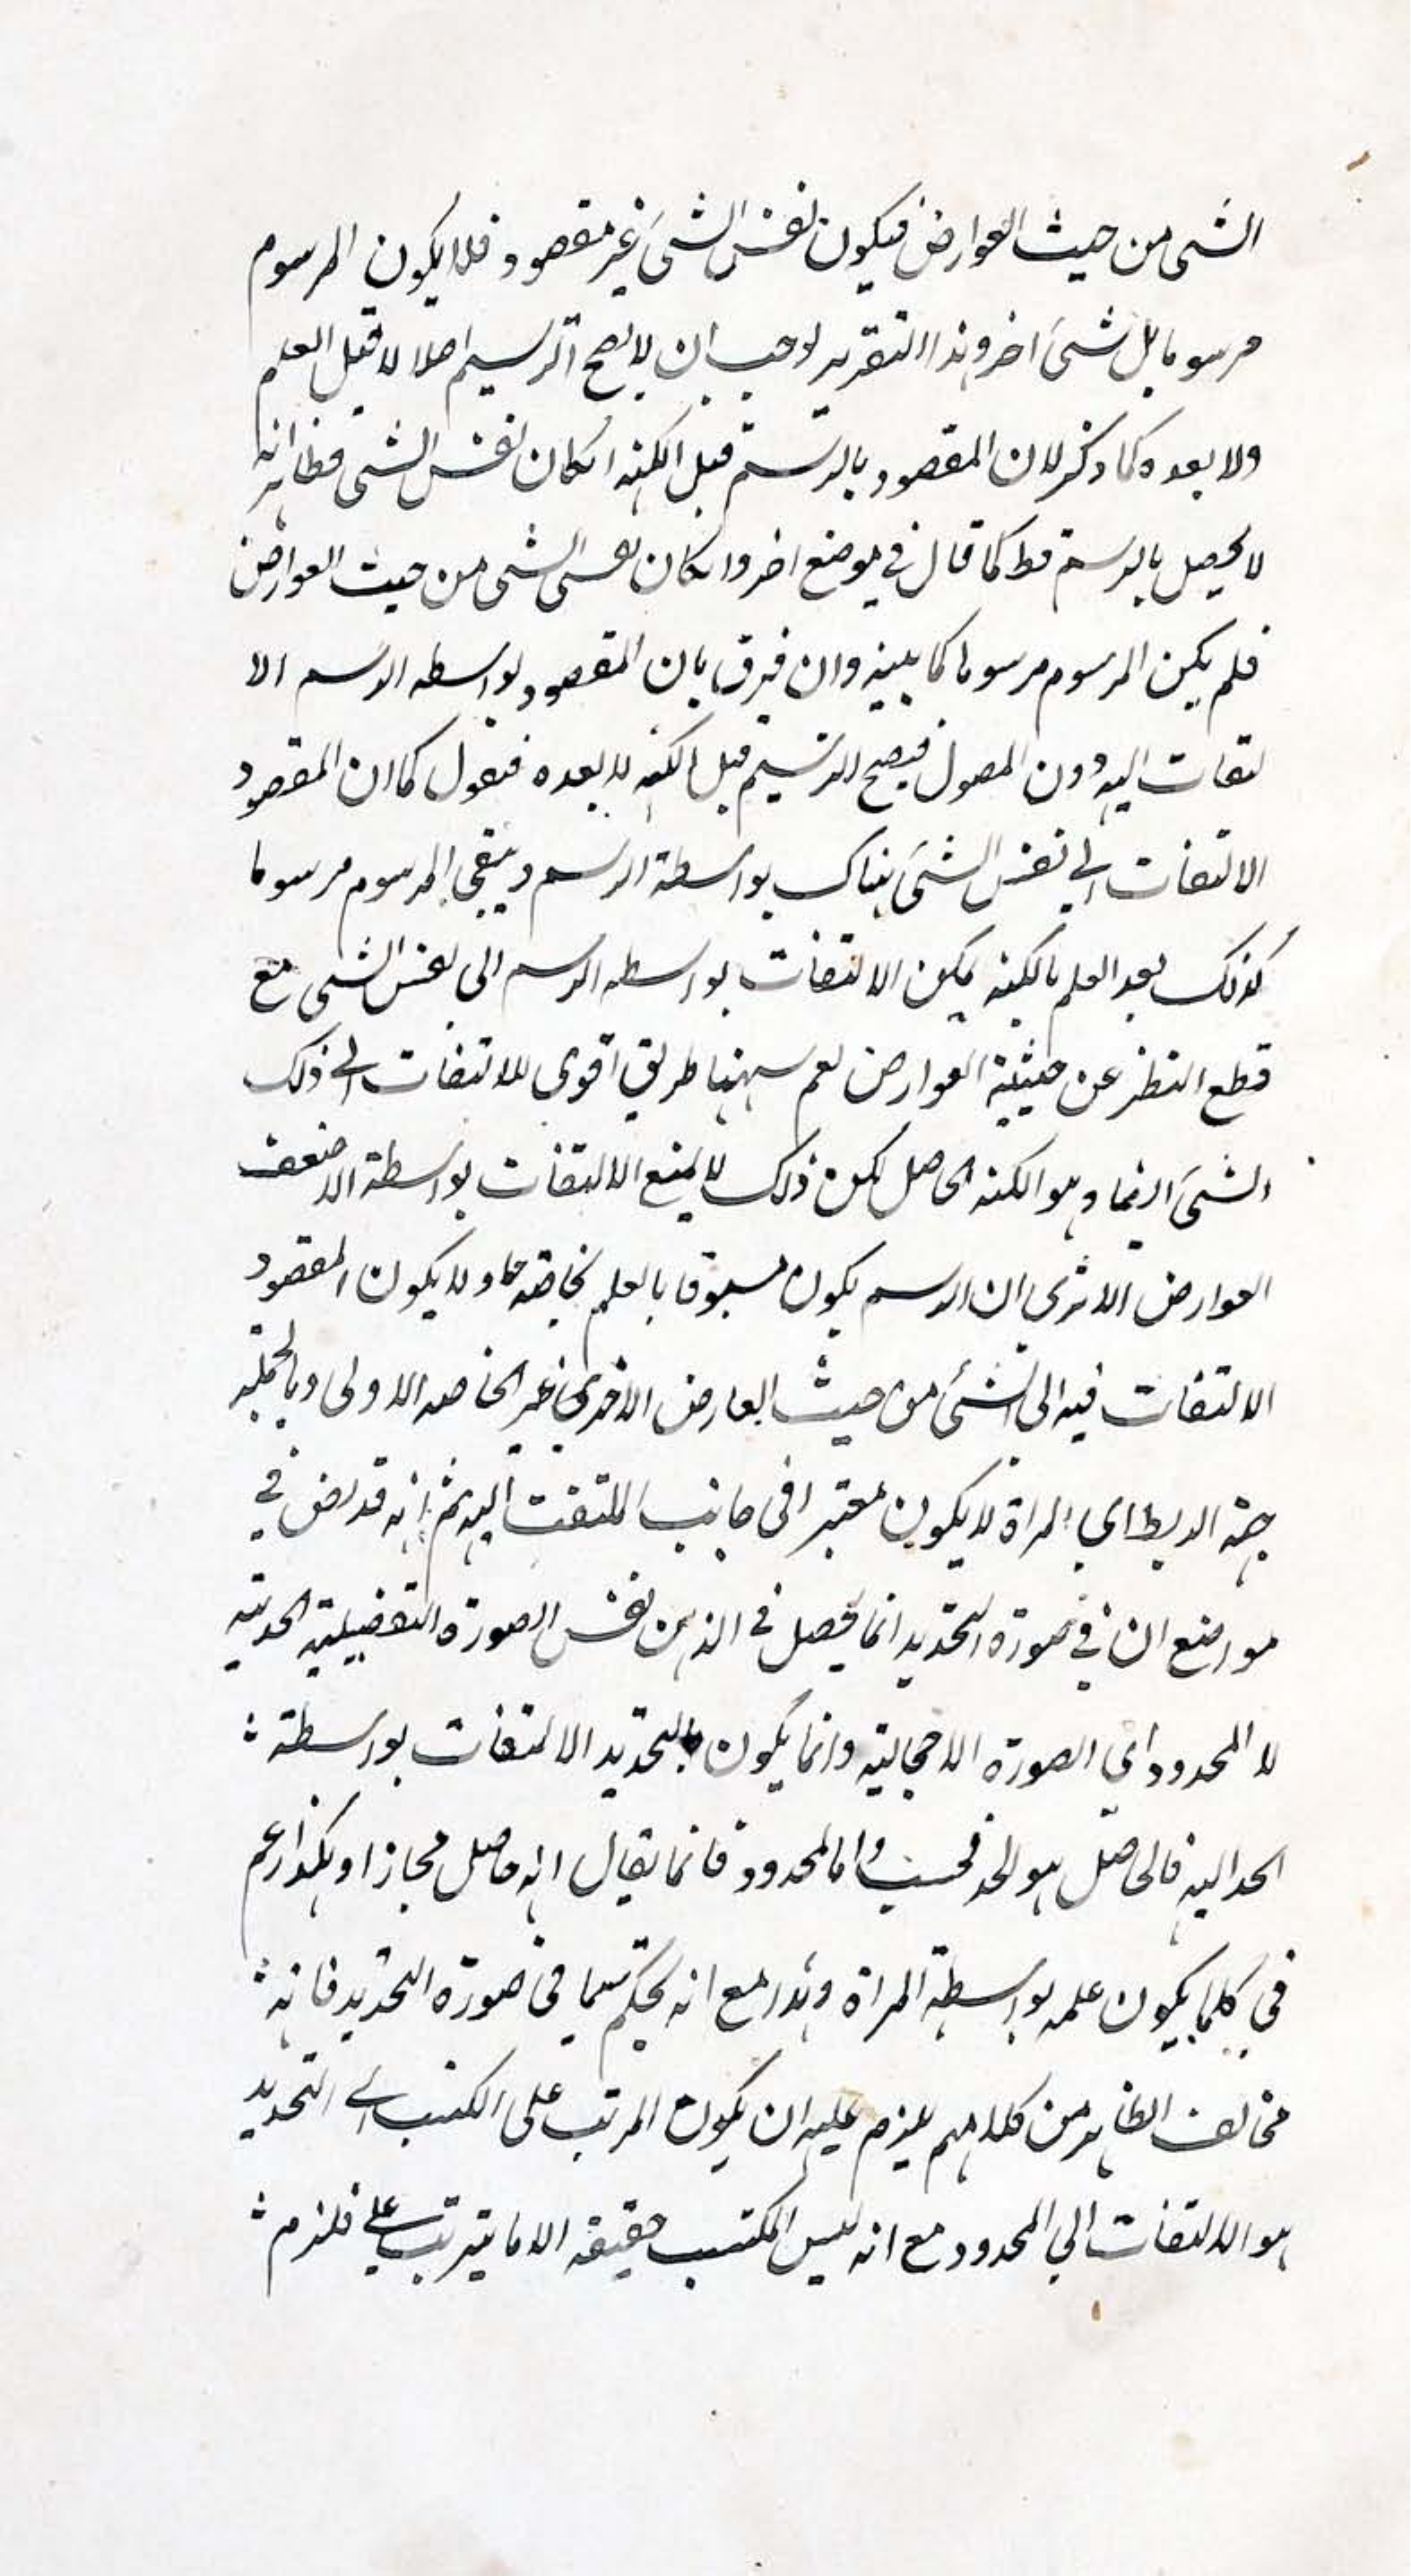 الشى من حيث العوارض فيكون نفس الشىَ غير مقصود فلا يكون المرسوم
مرسوما بل شىَ اخر وهذا التقرير لوجب ان لا يصح الترسيم اصلا لا قبل العلم
ولا بعده كما ذكر لان المقصود بالرسم قبل الكنه انكان نفس الشى فظاهر انه
لا يحصل بالرسم قط كما قال في موضع اخر وانكان نفس الشى من حيث العوارض
فلم يكن المرسوم مرسوما كما بينه وان فرق بان المقصود بواسطه الرسم الا
لتفات اليه دون الحصول فيصح الترسيم قبل الكنه لا بعده فنقول كما ان المقصود
الالتفات الي نفس الشىَ هناك بواسطة الرسم ويبقي المرسوم مرسوما
كذلك بعد العلم بالكنه يمكن الالتفات بواسطه الرسم الى نفس الشى مع
قطع النظر عن حيثية العوارض نعم ههنا طريق اقوى للالتفات الي ذلك
الشىَ ايضا وهو الكنه الحاصل لكن ذلك لا يمنع الالتفات بواسطة الاضعف
العوارض الا ترى ان الرسم يكون مسبوقا بالعلم بخاصة ما ولا يكون المقصود
الالتفات فيه الى الشئ من حيث العارض الاخرى غير الخاصه الاولى وبالجملة
جهة الربط اي المراة لا يكون معتبرا في جانب الملتفت اليه ثم انه قد نص في
مواضع ان في صورة التحديد انما يحصل في الذهن نفس الصورة التفصيلية الحدية
لا المحدود اي الصورة الاجمالية وانما يكون بالتحديد الالتفات بواسطة
الحد اليه فالحاصل هو الحد فحسب واما المحدود فانما يقال انه حاصل مجازا وهكذا زعم
في كلما يكون علمه بواسطة المراة وهذا مع انه تحكم سيما في صورة التحديد فانه
مخالف الظاهر من كلامهم يلزم عليه ان يكون المرتب على الكسب اي التحديد
هو الالتفات الي المحدود مع انه ليس المكتسب حقيقه الا ما يترتب علي فلزم